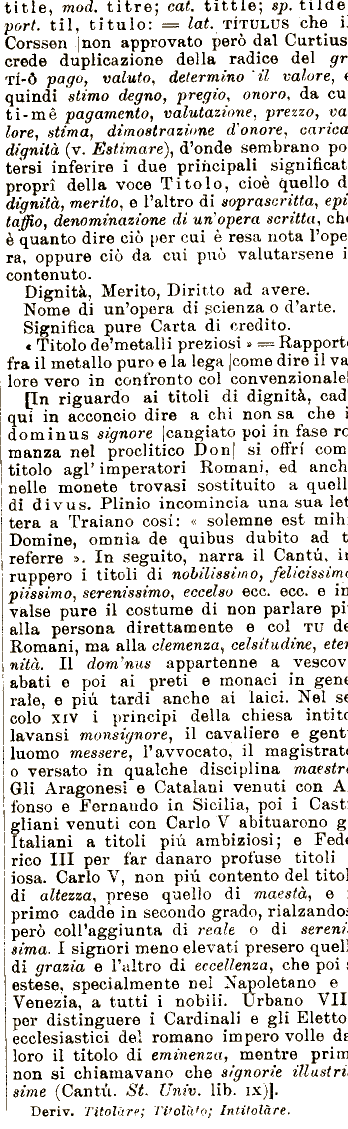 title, mod. titre; cat. tittle; sp. tilde
port. til, titulo: = lat. TÍTULUS che i
Corssen |non approvato però dal Curtius
crede duplicazione della radice del gr
TÍ-Ô pago, valuto, determino il valore, e
quindi stimo degno, pregio, onoro, da cu
ti-mê pagamento, valutazione, prezzo, va
lore, stima, dimostrazione d'onore, carica
dignità (v. Estimare), d'onde sembrano po
tersi inferire i due principali significat
proprî della voce Titolo, cioè quello d
dignità, merito, e l'altro di soprascritta, epi
taffio, denominazione di un'opera scritta, che
è quanto dire ciò per cui è resa nota l'ope
ra, oppure ciò da cui può valutarsene i
contenuto.
Dignità, Merito, Diritto ad avere.
Nome di un'opera di scienza o d'arte.
Significa pure Carta di credito.
« Titolo de'metalli preziosi » = Rapporto
fra il metallo puro e la lega |come dire il va
lore vero in confronto col convenzionale|
[In riguardo ai titoli di dignità, cad
qui in acconcio dire a chi non sa che i
dominus signore |cangiato poi in fase ro
manza nel proclitico Don| si offrí com
titolo agl'imperatori Romani, ed anch
nelle monete trovasi sostituito a quell
di divus. Plinio incomincia una sua let
tera a Traiano cosí: « solemne est mih
Domine, omnia de quibus dubito ad t
referre ». In seguito, narra il Cantú, ir
ruppero i titoli di nobilissimo, felicissimo
piissimo, serenissimo, eccelso ecc. ecc. e in
valse pure il costume di non parlare pi
alla persona direttamente e col TU de
Romani, ma alla clemenza, celsitudine, eter
nità. Il dom'nus appartenne a vescov
abati e poi ai preti e monaci in gene
rale, e piú tardi anche ai laici. Nel se
colo XIV i principi della chiesa intito
lavansi monsignore, il cavaliere e genti
luomo messere, l'avvocato, il magistrato
o versato in qualche disciplina maestro
Gli Aragonesi e Catalani venuti con A
fonso e Fernando in Sicilia, poi i Cast
gliani venuti con Carlo V abituarono g
Italiani a titoli piú ambiziosi; e Fede
rico III per far danaro profuse titoli
iosa. Carlo V, non piú contento del titol
di altezza, prese quello di maestà, e
primo cadde in secondo grado, rialzandos
però coll'aggiunta di reale o di sereni
sima. I signori meno elevati presero quell
di grazia e l'altro di eccellenza, che poi s
estese, specialmente nel Napoletano e
Venezia, a tutti i nobili. Urbano VII
per distinguere i Cardinali e gli Eletto
ecclesiastici del romano impero volle da
loro il titolo di eminenza, mentre prim
non si chiamavano che signorie illustri
sime (Cantú. St. Univ. lib. IX)].
Deriv. Titolàre; Titolàto; Intitolàre.